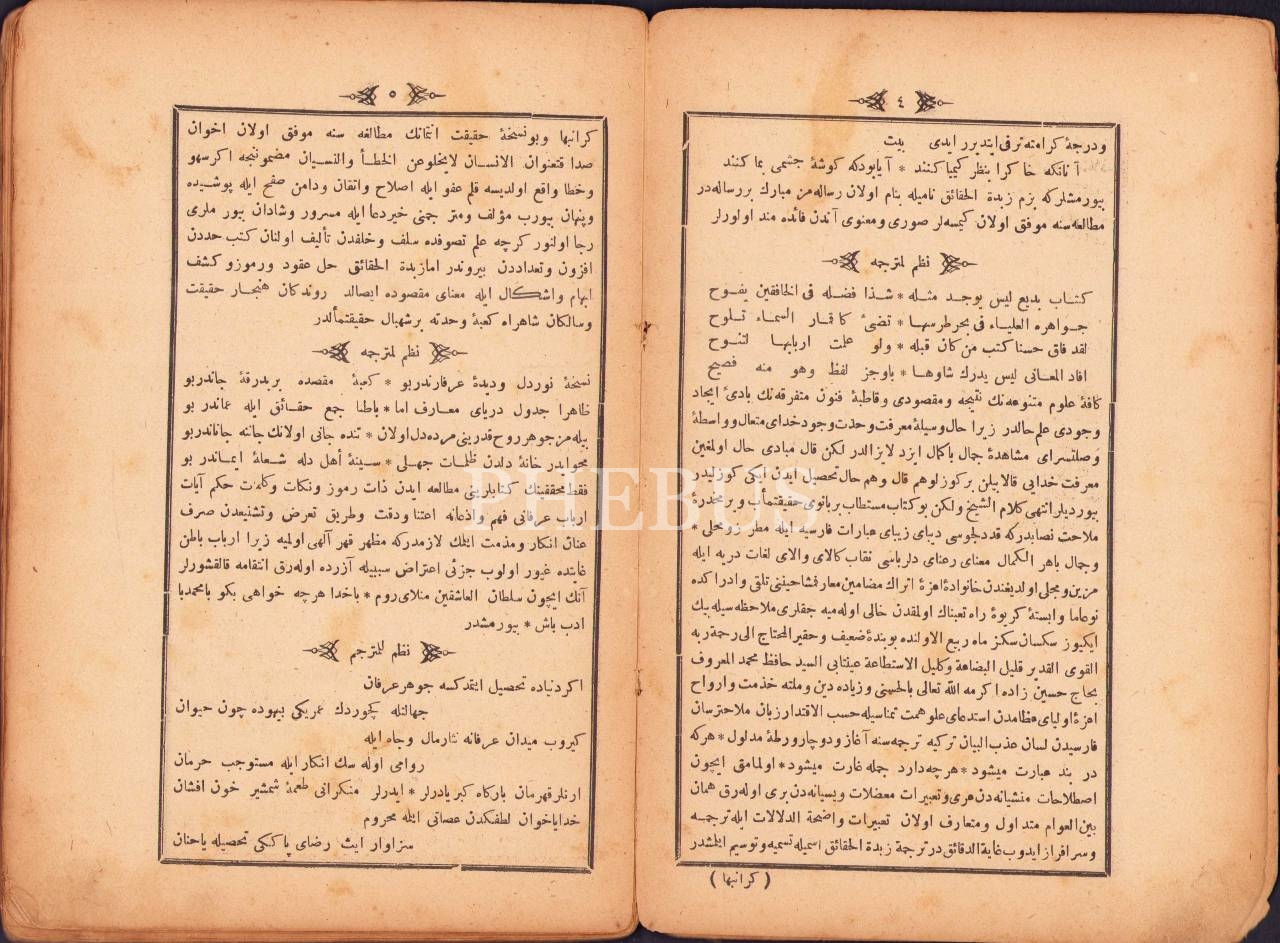 ٤
ودرجهٔ كرامته ترقى ايتديرر ايدى بيت
آنانكه خا كرا بنظر كيميا كنند * آيا بودكه كوشهٔ چشمى بما كنند
بيورمشلركه بزم زبدة الحقائق ناميله بنام اولان رساله من مبارك بررساله در
مطالعه سنه موفق اولان كيمسه لر صورى ومعنوى آندن فائده مند اولورلر
نظم لمترجمه
كتاب بديع ليس يوجد مثله * شذا فضله فى الخافقين يفوح
جواهره العلياء فى بحر طرسها * تضئ كاقار السماء تلوح
لقد فاق حسنا كتب من كان قبله * ولو علمت اربابها لتنوح
افاد المعانى ليس يدرك شاوها * باوجز لفظ وهو منه فصيح
كافهٔ علوم متنوعه نك نتيجه ومقصودى وقاطبهٔ فنون متفرقه نك بادئ ايجاد
وجودى علم حالدر زيرا حال وسيلهٔ معرفت وحدت وجود خداى متعال وواسطهٔ
وصلتسراى مشاهدهٔ جمال باكمال ايزد لايزالدر لكن قال مبادى حال اولمغين
معرفت خدايى قالا بيلن بركوزلو هم قال وهم حال تحصيل ايدن ايكى كوزليدر
بيورديلر انتهى كلام الشيخ ولكن بو كتاب مستطاب بربانوى حقيقتمأب وبر مخدرهٔ
ملاحت نصابدركه قد دلجوسى ديباى زيباى عبارات فارسيه ايله مطرز ومحلى *
وجمال باهر الكمال معناى رعناى دلرباسى نقاب كالاى والاى لغات دريه ايله
مزين ومجلى اولديغندن خانوادهٔ اعزهٔ اتراك مضامين معارفشاحيننى تلقى وادراكده
نوعاما وابستهٔ كريوهٔ راه تعبناك اولمقدن خالى اوله ميه جقلرى ملاحظه سيله بيك
ايكيوز سكسان سكز ماه ربيع الاولنده بو بندهٔ ضعيف وحقير المحتاج الى رحمة ربه
القوى القدير قليل البضاعة وكليل الاستطاعة عينتابى السيد حافظ محمد المعروف
بحاج حسين زاده اكرمه الله تعالى بالحسنى وزياده دين وملته خذمت وارواح
اعزهٔ اولياى عظامدن استدعاى علو همت تمناسيله حسب الاقتدار زبان ملاحترسان
فارسيدن لسان عذب البيان تركيه ترجمه سنه آغاز ودوچار ورطهٔ مدلول * هركه
در بند عبارت ميشود * هرچه دارد جمله غارت ميشود * اولمامق ايچون
اصطلاحات منشيانه دن عرى وتعبيرات معضلات وبسيانه دن برى اوله رق همان
بين العوام متداول ومتعارف اولان تعبيرات واضحة الدلالات ايله ترجمه
وسرافراز ايدوب غاية الدقائق در ترجمهٔ زبدة الحقائق اسميله تسميه وتوسيم ايلمشدر
( كرانبها )
٥
كرانبها وبو نسخهٔ حقيقت انتمانك مطالعه سنه موفق اولان اخوان
صدا قتعنوان الانسان لايخلو عن الخطأ والنسيان مضمونجه اكر سهو
وخطا واقع اولديسه قلم عفو ايله اصلاح واتقان ودامن صفح ايله پوشيده
وپنهان بيورب مؤلف ومتر جمنى خير دعا ايله مسرور وشادان بيور ملرى
رجا اولنور كرچه علم تصوفده سلف وخلفدن تأليف اولنان كتب حددن
افزون وتعداددن بيروندر اما زبدة الحقائق حل عقود ورموز وكشف
ابهام واشكال ايله معناى مقصوده ايصالد روندكان هنجار حقيقت
وسالكان شاهراه كعبهٔ وحدته برشهبال حقيقتمألدر
نظم لمترجمه
نسخهٔ نوردل وديدهٔ عرفاندر بو * كعبهٔ مقصده بر بدرقهٔ جاندر بو
ظاهرا جدول درياى معارف اما * باطنا جمع حقائق ايله عماندر بو
بيله من جوهر روح قدرينى مرده دل اولان * تنده جانى اولانك جاننه جاناندر بو
محو ايدر خانهٔ دلدن ظلمات جهلى * سينهٔ أهل دله شعلهٔ ايماندر بو
فقط محققينك كتابلرينى مطالعه ايدن ذات رموز ونكات وكلمات حكم آيات
ارباب عرفانى فهم واذعانه اعتنا ودقت وطريق تعرض وتشنيعدن صرف
عنان انكار ومذمت ايتلك لازمدركه مظهر قهر آلهى اولميه زيرا ارباب باطن
غايتده غيور اولوب جزئى اعتراض سببيله آزرده اوله رق انتقامه قالقشورلر
آنك ايچون سلطان العاشقين منلاى روم * باخدا هرچه خواهى بكو بامحمد با
ادب باش * بيورمشدر
نظم للمترجم
اكر دنياده تحصيل ايتمدكسه جوهر عرفان
جهالتله كچوردك عمريكى بيهوده چون حيوان
كيروب ميدان عرفانه نثار مال وجاه ايله
روامى اوله سك انكار ايله مستوجب حرمان
ارنلر قهرمان باركاه كبريادرلر * ايدرلر منكرانى طعمهٔ شمشير خون افشان
خدايا خوان لطفكدن عصاتى ايله محروم
سزاوار ايت رضاى پاككى تحصيله ياحنان
PHEBUS